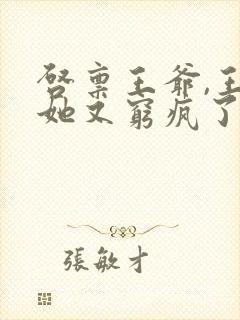 启禀王爷,王
她又窮疯了
張敏才